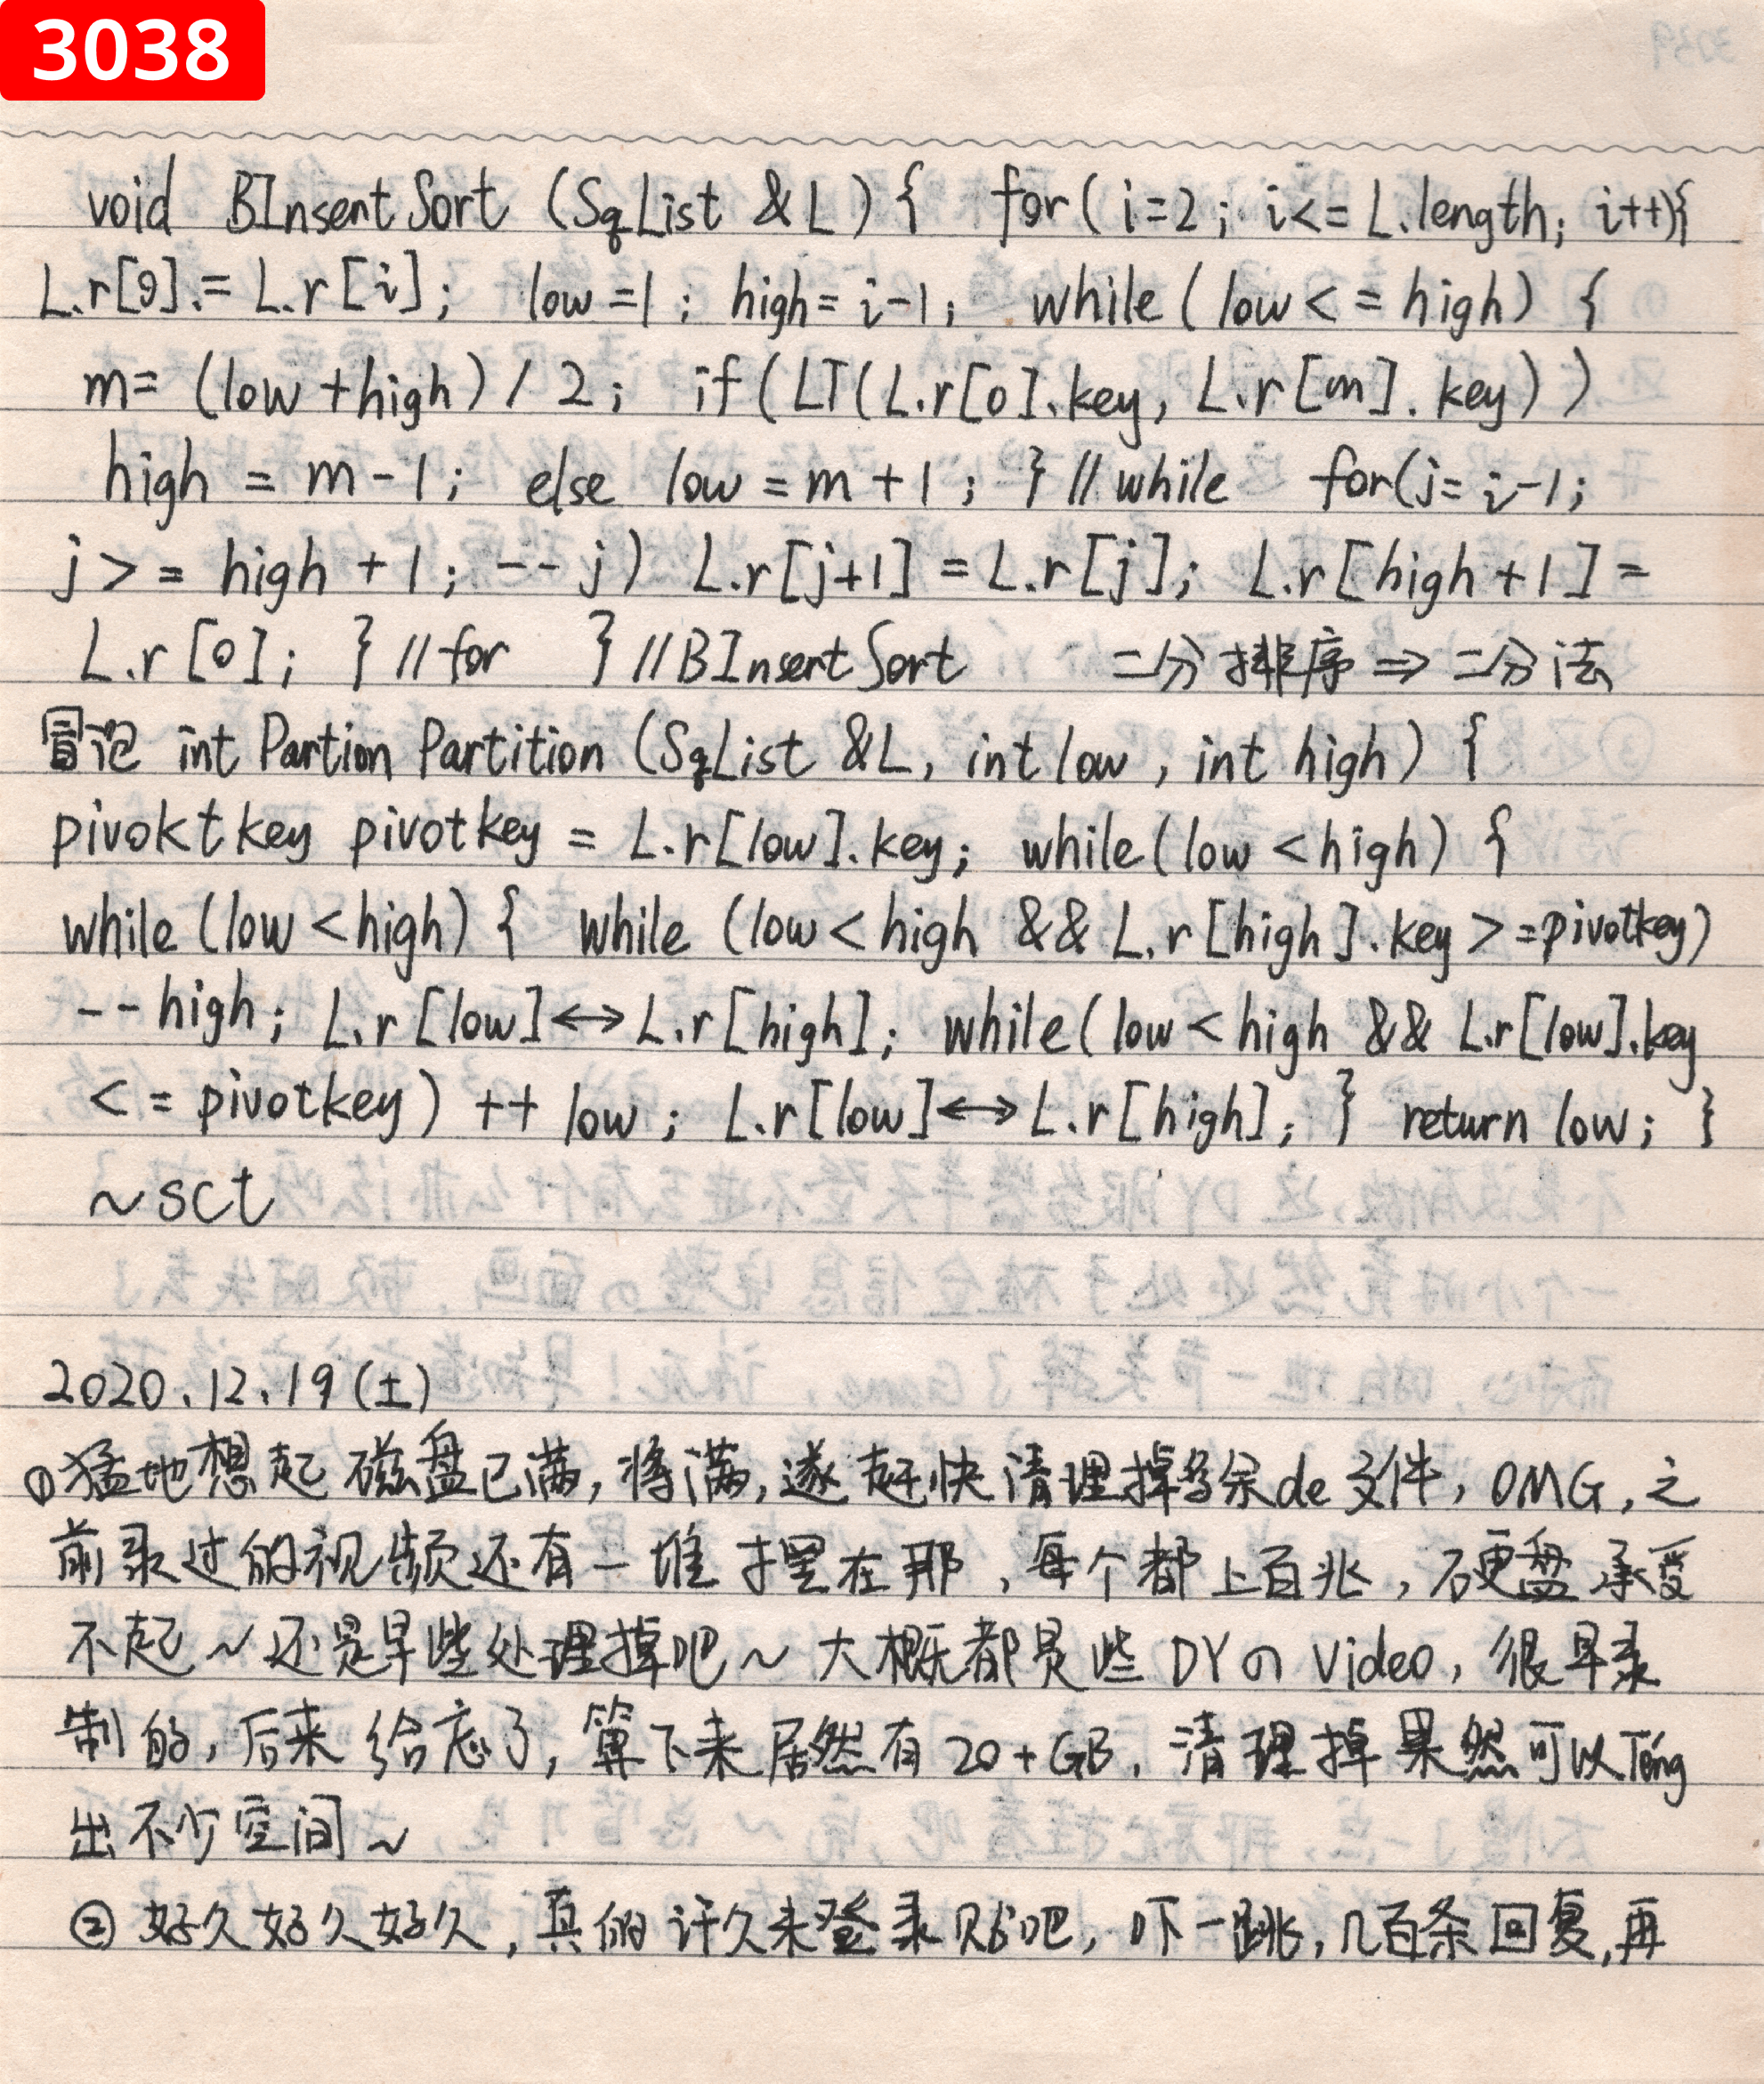 3038
void BInsentSort (SqList &L) { for( i=2; i<= L.length; i++){
L.r[0].= L.r[i]; low =1; high= i-1; while( low <= high) {
m= (low +high) / 2; if(LT(L.r[0].key, L.r[m].key))
high = m-1; else low = m+1; } //while for(j= i-1;
j >= high +1; --j) L.r[j+1] = L.r[j]; L.r[high+1] =
L.r[0]; } //for } //BInsertSort 二分排序⇒二分法
冒记 int Partion Partition (SqList &L, int low, int high) {
pivoktkey pivotkey = L.r[low].key; while(low <high) {
while (low <high) { while (low < high && L.r[high].key >=pivotkey)
--high; L.r[low]↔L.r[high]; while(low < high && L.r[low].key
<= pivotkey) ++ low; L.r[low]↔L.r[high]; } return low; }
~sct
2020.12.19(土)
①猛地想起磁盘已满,将满,遂赶快清理掉多余de文件,OMG,之
前录过的视频还有一堆摆在那,每个都上百兆,硬盘承受
不起~还是早些处理掉吧~大概都是些DYの Video,很早录
制的,后来给忘了,算下来居然有20+GB,清理掉果然可以Téng
出不少空间~
②好久好久好久,真的许久未登录贴吧,吓一跳,几百条回复,再